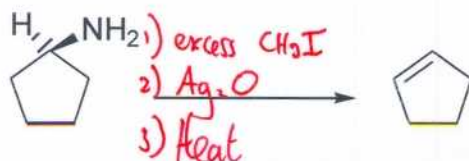 H
NH₂
1) excess CH₃I
2) Ag₂O
3) Heat